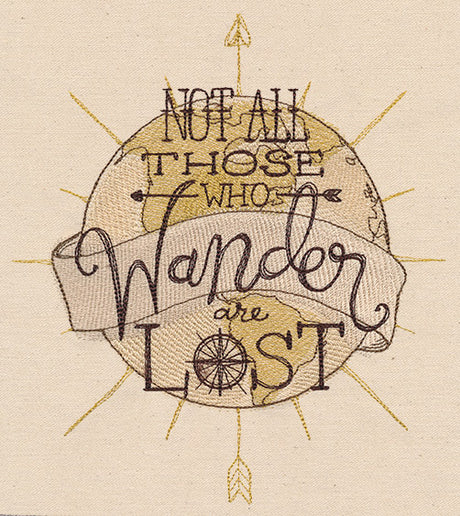 NOT ALL
THOSE
WHO
Wander
are
LOST